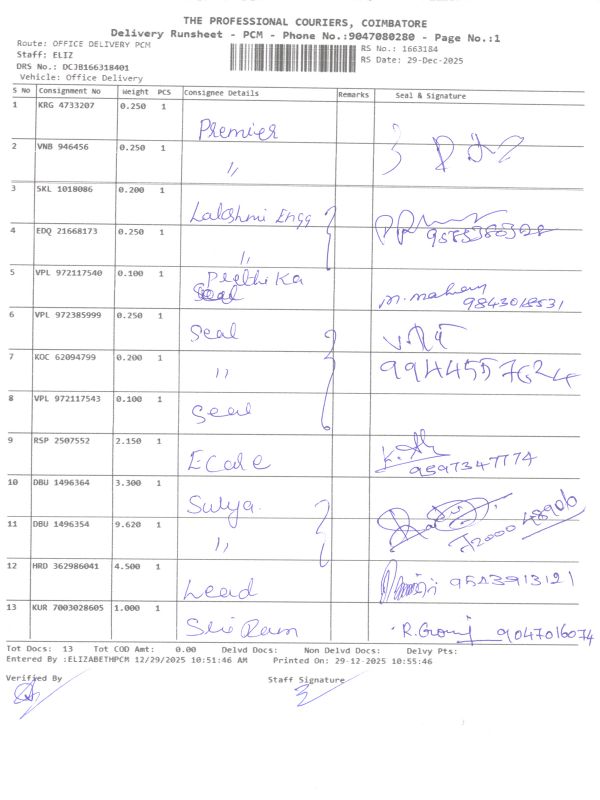 THE PROFESSIONAL COURIERS, COIMBATORE
Delivery Runsheet - PCM - Phone No.:9047080280 - Page No.:1
Route: OFFICE DELIVERY PCM
RS No.: 1663184
Staff: ELIZ
RS Date: 29-Dec-2025
DRS No.: DCJB166318401
Vehicle: Office Delivery
S No Consignment No Weight PCS Consignee Details Remarks Seal & Signature
1 KRG 4733207 0.250 1
Premier
2 VNB 946456 0.250 1
,,
3 SKL 1018086 0.200 1
Lakshmi Engg
4 EDQ 21668173 0.250 1
,,
5 VPL 972117540 0.100 1
Prethika
9843018531
6 VPL 972385999 0.250 1
Seal
7 KOC 62094799 0.200 1
,, 9944557624
8 VPL 972117543 0.100 1
Seal
9 RSP 2507552 2.150 1
9597347774
10 DBU 1496364 3.300 1
Surya
11 DBU 1496354 9.620 1
,,
12 HRD 362986041 4.500 1
Lead
13 KUR 7003028605 1.000 1
Sri Ram 9047016074
Tot Docs: 13 Tot COD Amt: 0.00 Delvd Docs: Non Delvd Docs: Delvy Pts:
Entered By :ELIZABETHPCM 12/29/2025 10:51:46 AM Printed On: 29-12-2025 10:55:46
Verified By Staff Signature